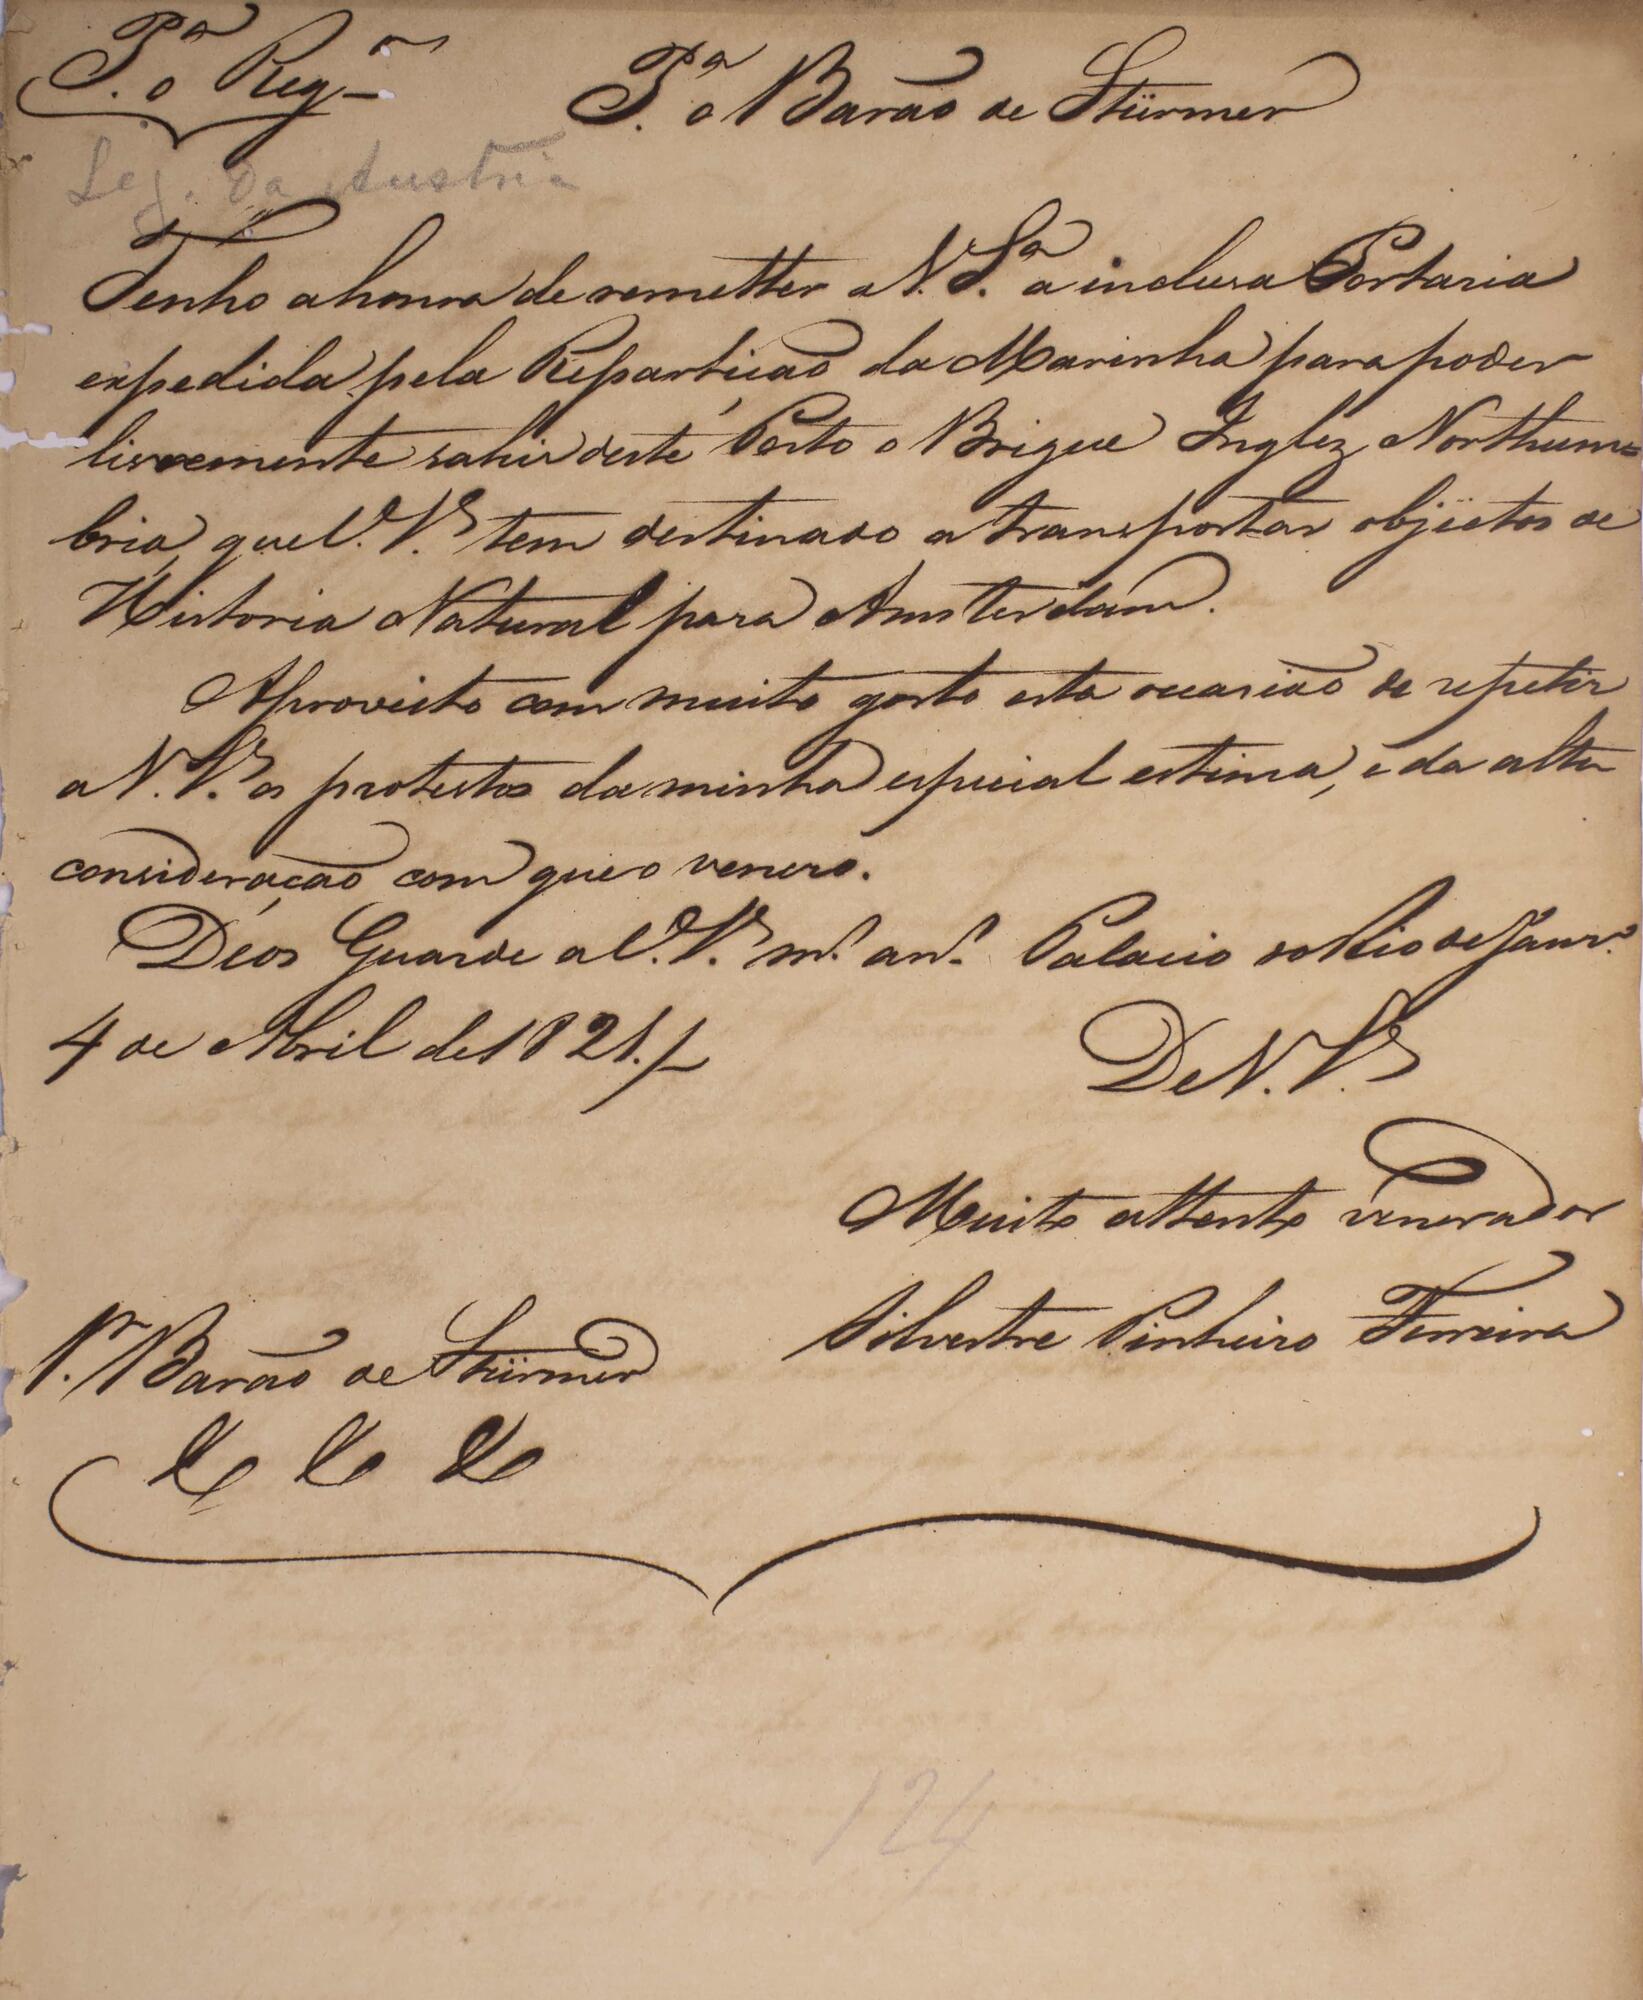 P.ª o Reg.º
P.ª o Barão de Stürmer
Leg. da Austria
Tenho a honra de remetter a V. S.ª a inclusa Portaria
expedida pela Repartição da Marinha para poder
livremente sahir deste Porto o Brigue Inglez Northum=
bria, que V. S. tem destinado a transportar objectos de
Historia Natural para Amsterdam.
Aproveito com muito gosto esta occasião de repetir
a V. S. os protestos da minha especial estima, e da alta
consideração com que o venero.
Deos Guarde a V. S. m.s an.s Palacio do Rio de Janr.º
4 de Abril de 1821.
De V. S.
Muito attento venerador
Silvestre Pinheiro Ferreira
S.r Barão de Stürmer
&c &c &c
124